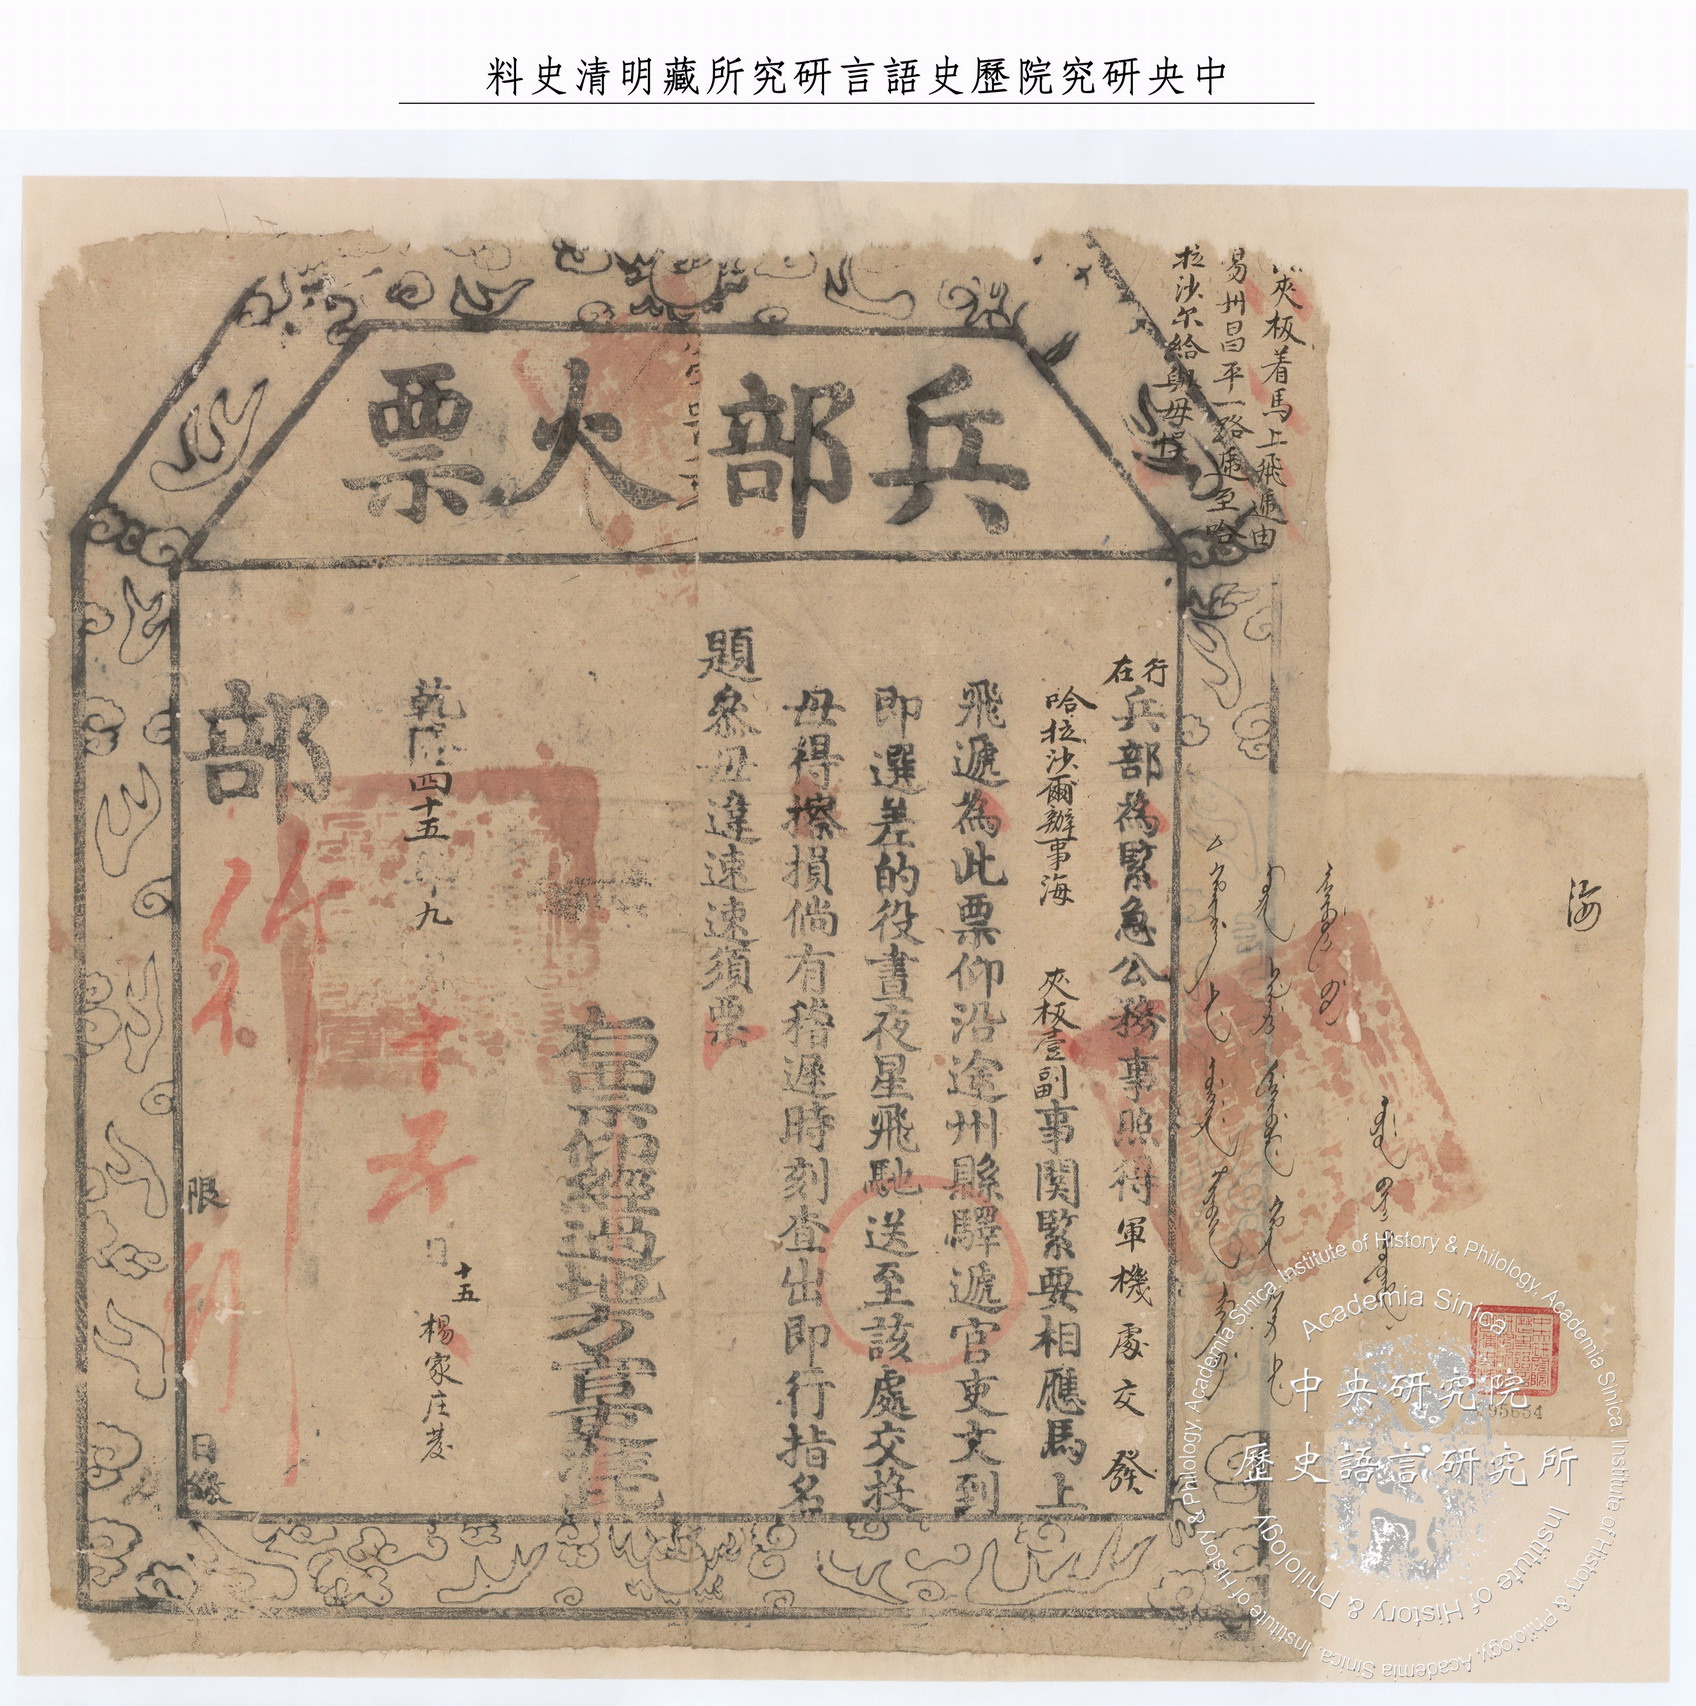 中央研究院歷史語言研究所藏明清史料
兵部火票
夾板着馬上飛遞由
易州昌平一路遞至哈
拉沙尔給與毋悞
行在兵部為緊急公務事照得軍機處交發
哈拉沙爾辦事海 夾板壹副事関緊要相應馬上
飛遞為此票仰沿途州縣驛遞官吏文到
即選差的役晝夜星飛馳送至該處交投
毋得擦損倘有稽遲時刻查出即行指名
題參毋違速速須票
右票仰經過地方官吏准此
乾隆四十五年九月十五日
十五
楊家庄發
部
行
限
日繳
海
95654
中央研究院
歷史語言研究所
Academia Sinica
Institute of History & Philology, Academia Sinica.